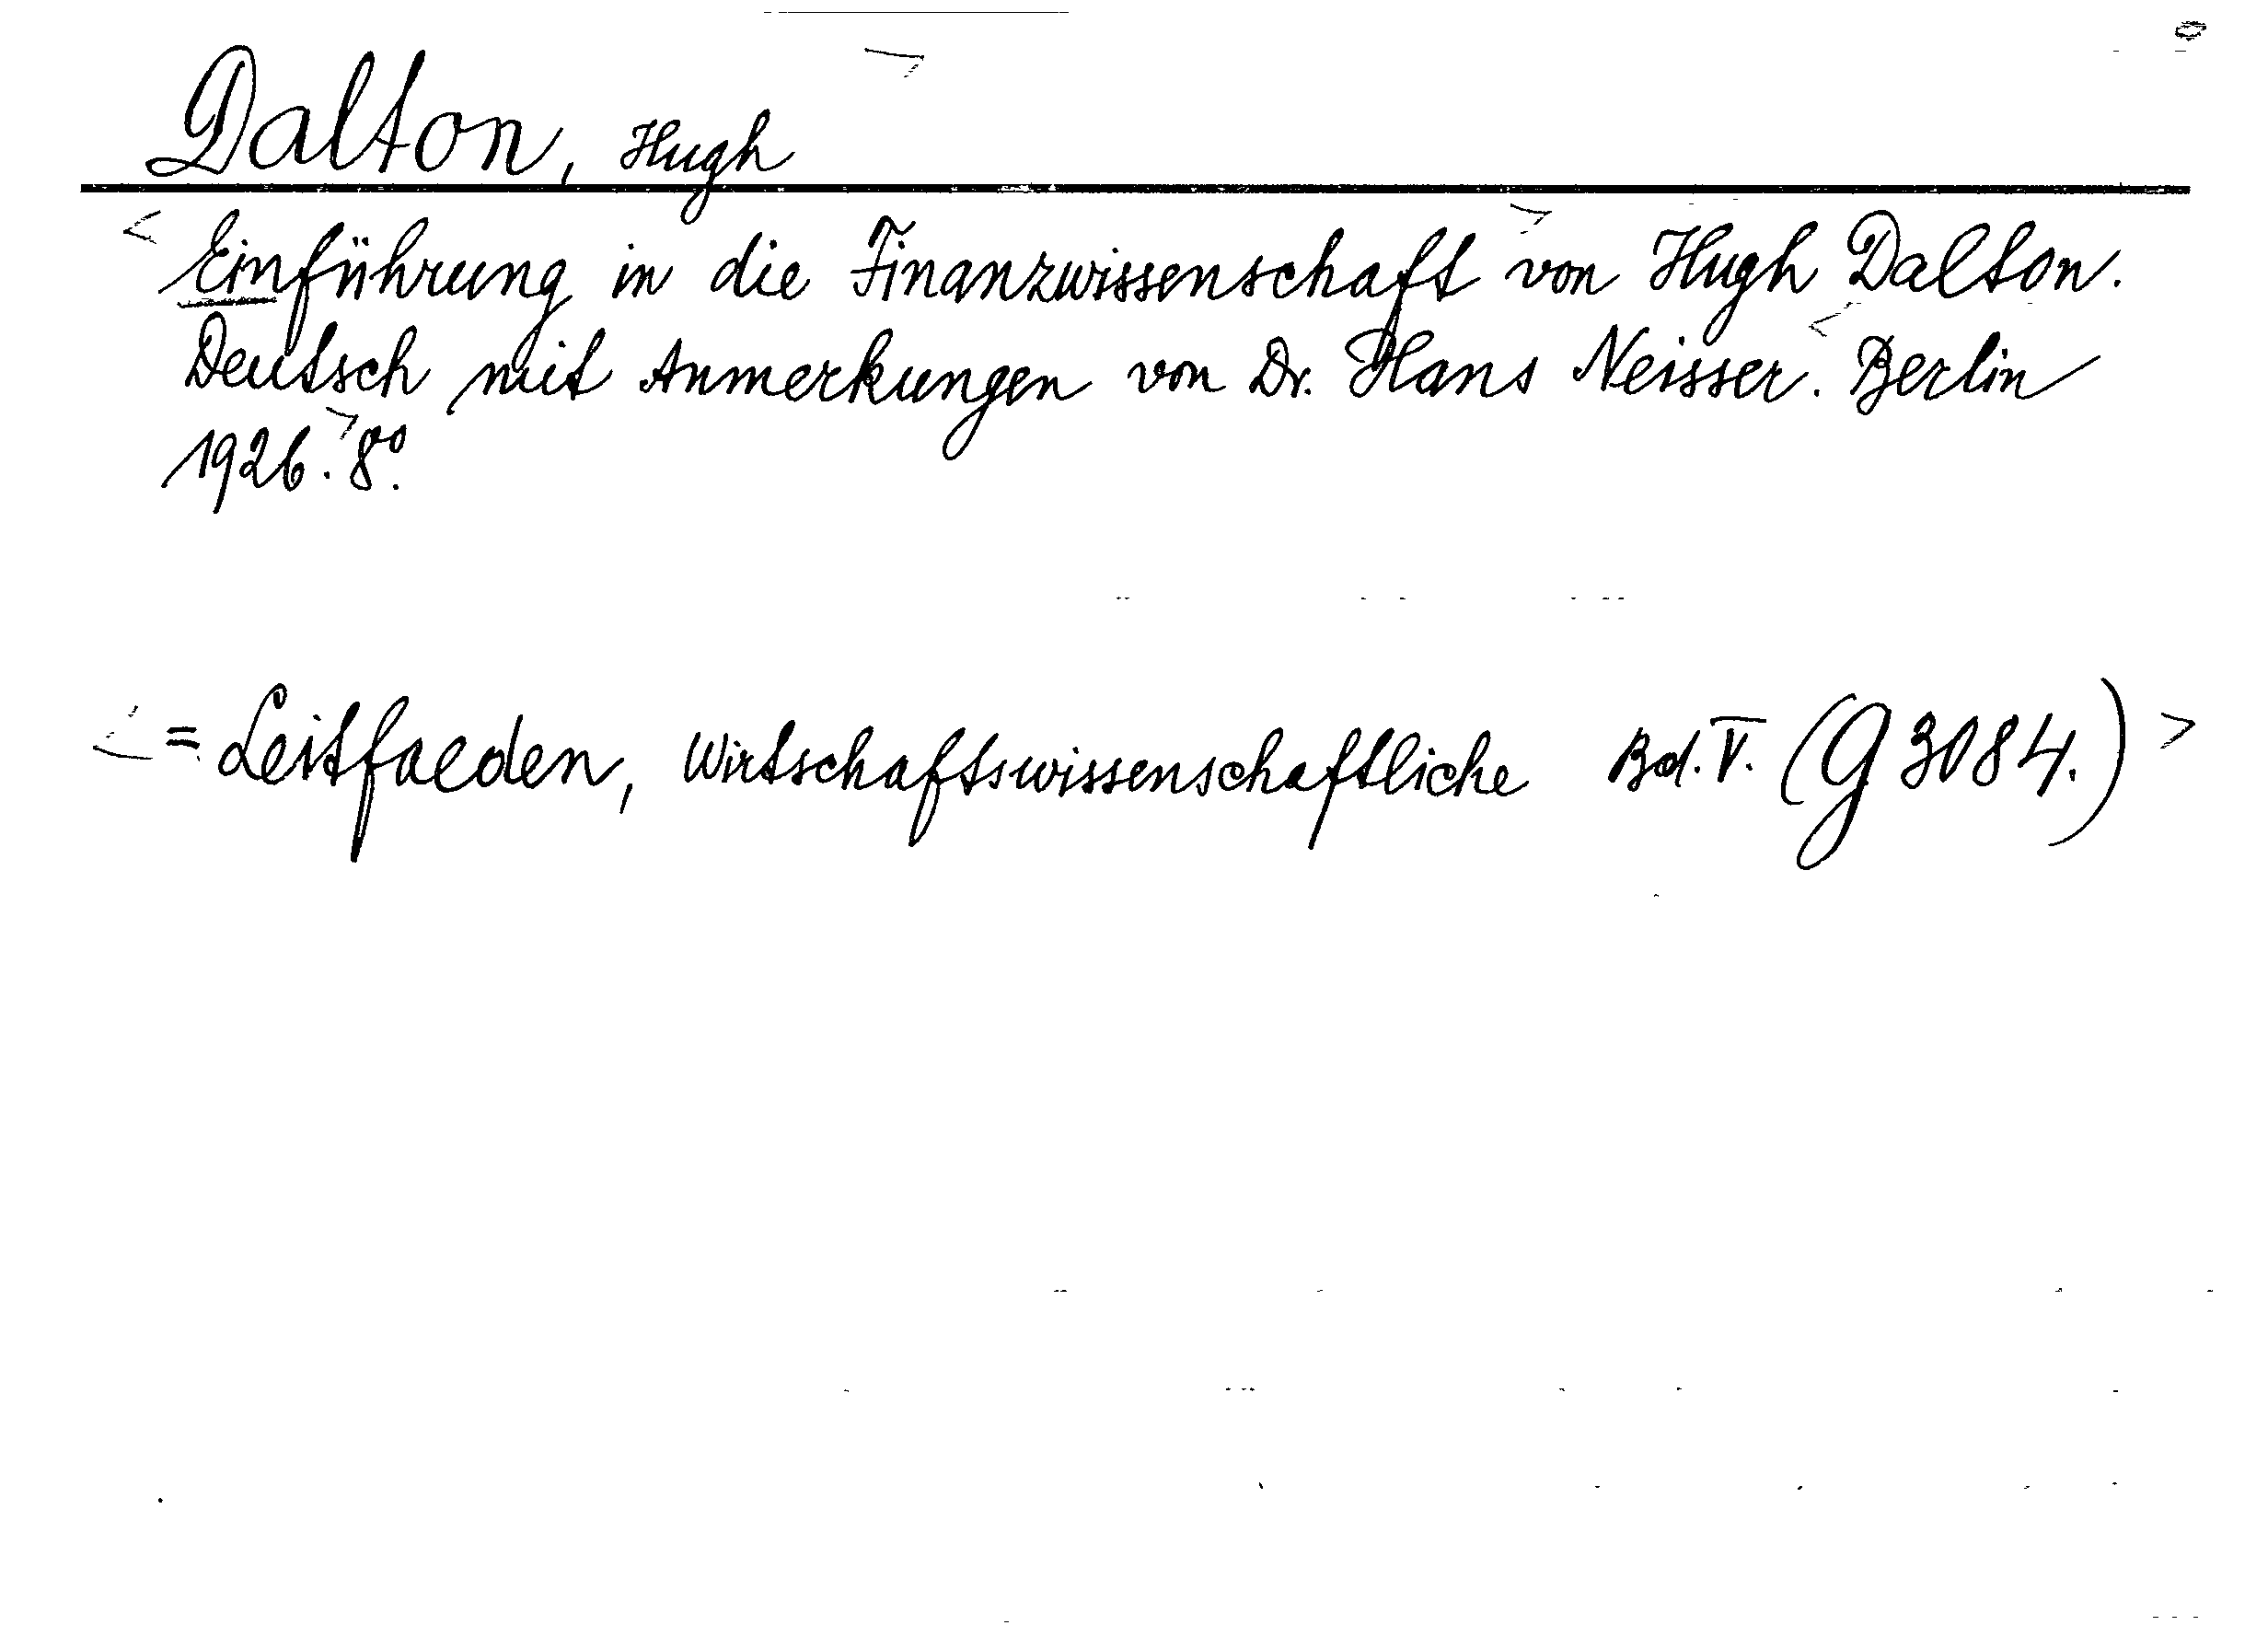 Dalton, Hugh
Einführung in die Finanzwissenschaft von Hugh Dalton.
Deutsch mit Anmerkungen von Dr. Hans Neisser. Berlin
1926. 8°.
= Leitfaeden, Wirtschaftswissenschaftliche Bd. V. (G 3084.)